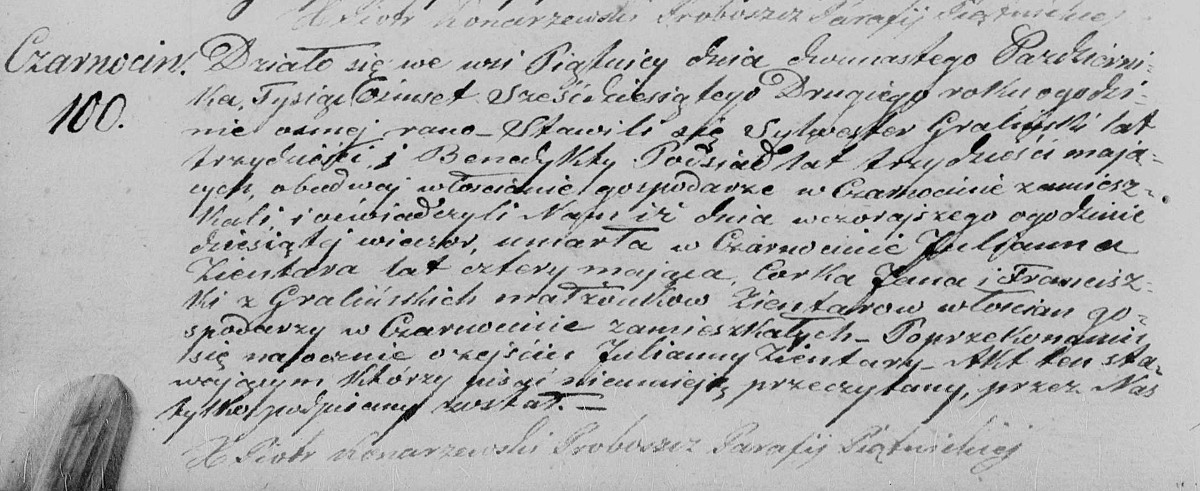 X Piotr Konarzewski Proboszcz Parafij Piątnickiej
Czarnocin. Działo się we wsi Piątnicy dnia dwunastego Pazdzierni-
100. ka, Tysiąc Ośmset Sześcdziesiątego Drugiego roku ogodzi-
nie osmej rano – Stawili się Sylwester Graliński lat
trzydzieści i Benedykty Podsiad lat trzydzieści mają-
cych, obadwaj włoscianie gospodarze w Czarnocinie zamiesz-
kali i oświadczyli Nam iż dnia wczorajszego ogodzinie
dziesiątej wieczór, umarła w Czarnocinie Julianna
Zientara lat cztery mająca, Corka Jana i Francisz-
ki z Gralińskich małżonkow Zientarow włoscian go-
spodarzy w Czarnocinie zamieszkałych – Poprzekonaniu
się naocznie ozejściu Julianny Zientary – Akt ten sta-
wającym którzy pisać nieumieją przeczytany, przez Nas
tylko podpisany został. =
X Piotr Konarzewski Proboszcz Parafij Piątnickiej